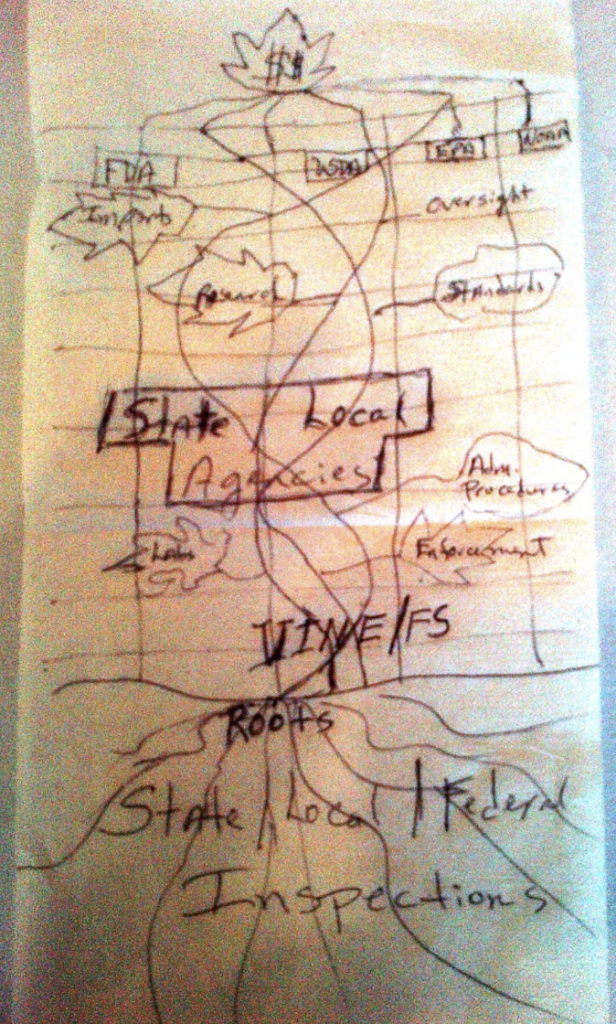 $$
FDA USDA EPA NOAA
Imports
oversight
Research
Standards
State Local
Agencies
Adm.
Procedures
Labs
Enforcement
VINE/FS
Roots
State/Local/Federal
Inspections